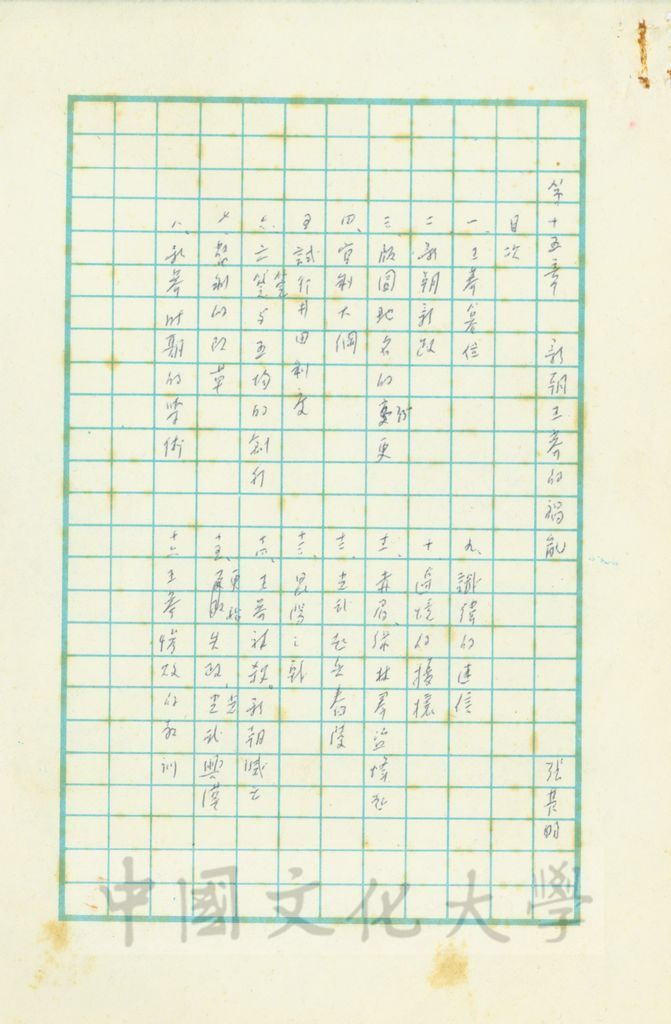 第十五章 新朝王莽的禍亂 張其昀
目次
一、王莽篡位
二、新朝新政
三、版圖地名的變更
四、官制大綱
五、試行井田制度
六、六筦與五均的創行
七、幣制的改革
八、新莽時期的學術
九、讖緯的迷信
十、邊境的擾攘
十一、赤眉、綠林羣盜蠭起
十二、光武起兵舂陵
十三、昆陽之戰
十四、王莽被殺。新朝滅亡
十五、更始失政,光武興漢
十六、王莽情敗的教訓
中國文化大學